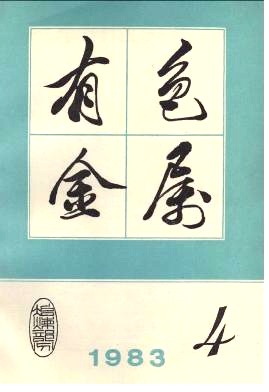 有色
金属
冶炼部分
1983
4